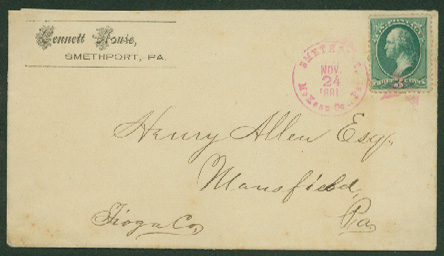 Bennett House,
SMETHPORT, PA.
SMETHPORT
NOV.
24
1881
McKean Co., Pa.
Henry Allen Esq.
Mansfield,
Tioga Co,
Pa